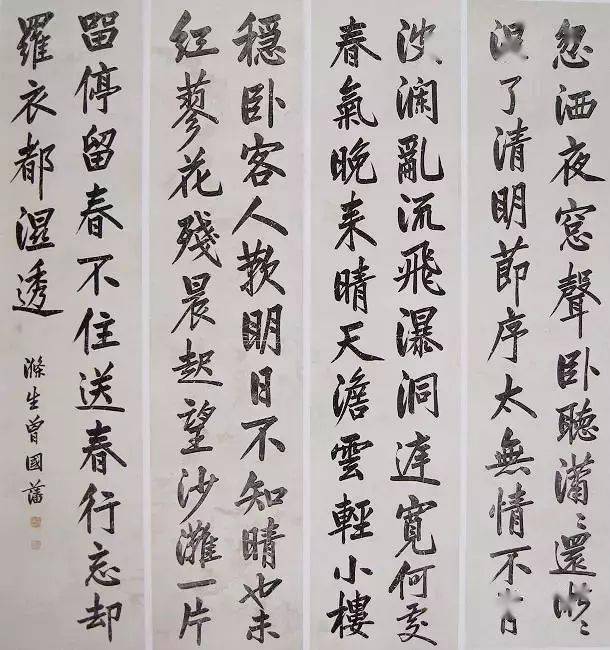 忽洒夜窓聲卧聽瀟〻還淅〻
了清明節序太無情不肯
瀾亂流飛瀑洞庭寬何處
春氣晚来晴天澹雲輕小樓
穩卧客人歎明日不知晴也未
紅蓼花殘晨起望沙灘一片
留停留春不住送春行忘却
羅衣都濕透
滌生曾國藩